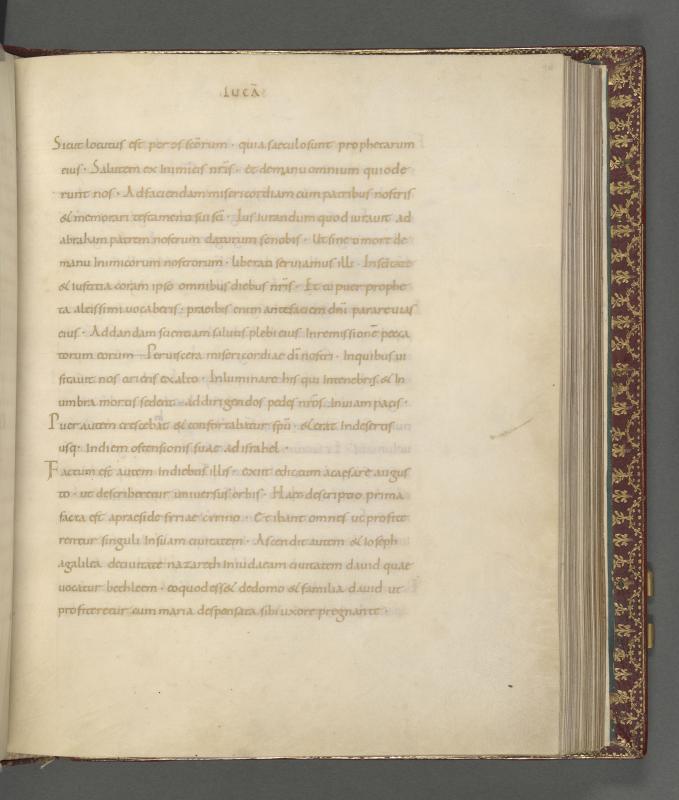 LUCĀ
Sicut locutus est per os scōrum · qui a saeculo sunt prophetarum
eius · Salutem ex Inimicis nr̄is · et demanu omnium qui ode
runt nos · Ad faciendam misericordiam cum patribus nostris
& memorari testamenti sui sc̄i · Ius Iurandum quod iuravit ad
abraham patrem nostrum daturum se nobis · Ut sine timore de
manu Inimicorum nostrorum · liberati serviamus illi · In scitate
& Iustitia coram ipso omnibus diebus nr̄is · Et tu puer prophe
ta altissimi vocaberis · praeibis enim ante faciem dn̄i parare vias
eius · Ad dandam scientiam salutis plebi eius In remissionē pecca
torum eorum Per viscera misericordiae dī nostri · In quibus vi
sitavit nos oriens ex alto · Inluminare his qui In tenebris & In
umbra mortis sedent · ad dirigendos pedes nr̄os In viam pacis ·
Puer autem crescebat & confortabatur sp̄u · & erat In desertis
usq· In diem ostensionis suae ad israhel ·
Factum est autem In diebus illis · exiit edictum a caesare augus
to · ut describeretur universus orbis · Haec descriptio prima
facta est a praeside syriae cirino · Et ibant omnes ut profite
rentur singuli In suam civitatem · Ascendit autem & Ioseph
a galilea de civitate nazareth In iudaeam civitatem david quae
vocatur bethleem · eo quod ess& de domo & familia david ut
profiteretur cum maria desponsata sibi uxore pregnante ·